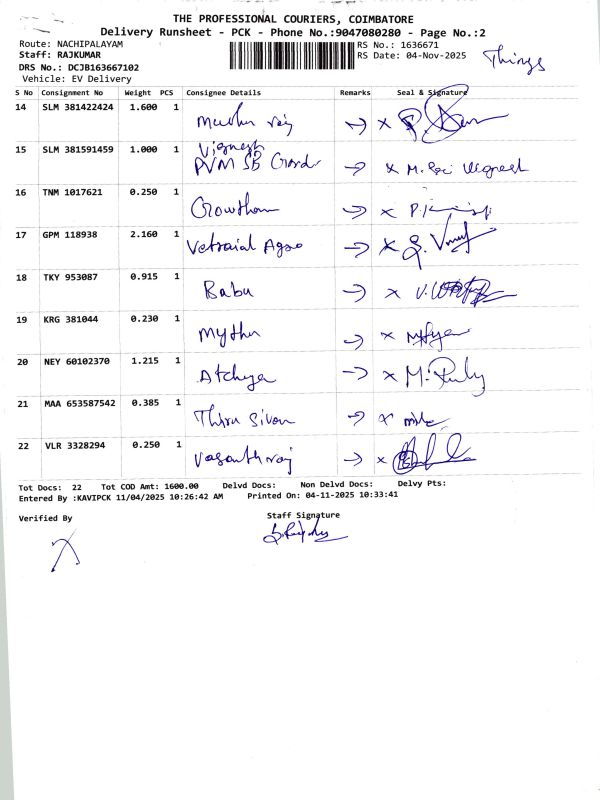 THE PROFESSIONAL COURIERS, COIMBATORE
Delivery Runsheet - PCK - Phone No.:9047080280 - Page No.:2
Route: NACHIPALAYAM RS No.: 1636671
Staff: RAJKUMAR RS Date: 04-Nov-2025 Things
DRS No.: DCJB163667102
Vehicle: EV Delivery
S No Consignment No Weight PCS Consignee Details Remarks Seal & Signature
14 SLM 381422424 1.600 1
15 SLM 381591459 1.000 1 Vignesh
PVM SB
16 TNM 1017621 0.250 1 Growtham
17 GPM 118938 2.160 1 Vetraial Agro
18 TKY 953087 0.915 1 Babu
19 KRG 381044 0.230 1 Mythu
20 NEY 60102370 1.215 1 Atchya
21 MAA 653587542 0.385 1 Thiru Sivan
22 VLR 3328294 0.250 1 Vasanth raj
Tot Docs: 22 Tot COD Amt: 1600.00 Delvd Docs: Non Delvd Docs: Delvy Pts:
Entered By :KAVIPCK 11/04/2025 10:26:42 AM Printed On: 04-11-2025 10:33:41
Verified By Staff Signature